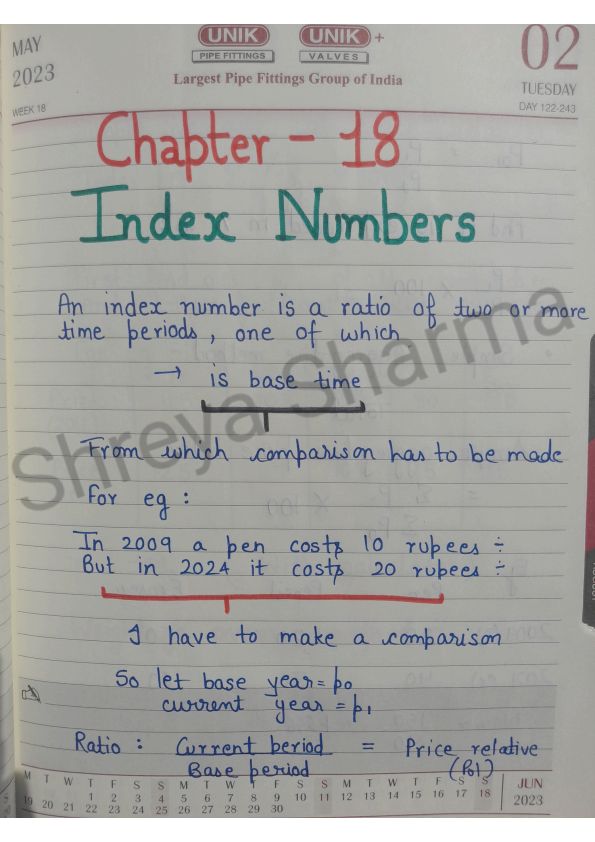 MAY
2023
WEEK 18
UNIK UNIK +
PIPE FITTINGS VALVES
Largest Pipe Fittings Group of India
02
TUESDAY
DAY 122-243
Chapter - 18
Index Numbers
An index number is a ratio of two or more
time periods, one of which
→ is base time
From which comparison has to be made
For eg :
In 2009 a pen costs 10 rupees ÷
But in 2024 it costs 20 rupees ÷
I have to make a comparison
So let base year = p₀
current year = p₁
Ratio : Current period = Price relative
Base period (P01)
M T W T F S S M T W T F S S M T W T F S S M T W T F S S
1 2 3 4 5 6 7 8 9 10 11 12 13 14 15 16 17 18
19 20 21 22 23 24 25 26 27 28 29 30
JUN
2023
Shreya Sharma